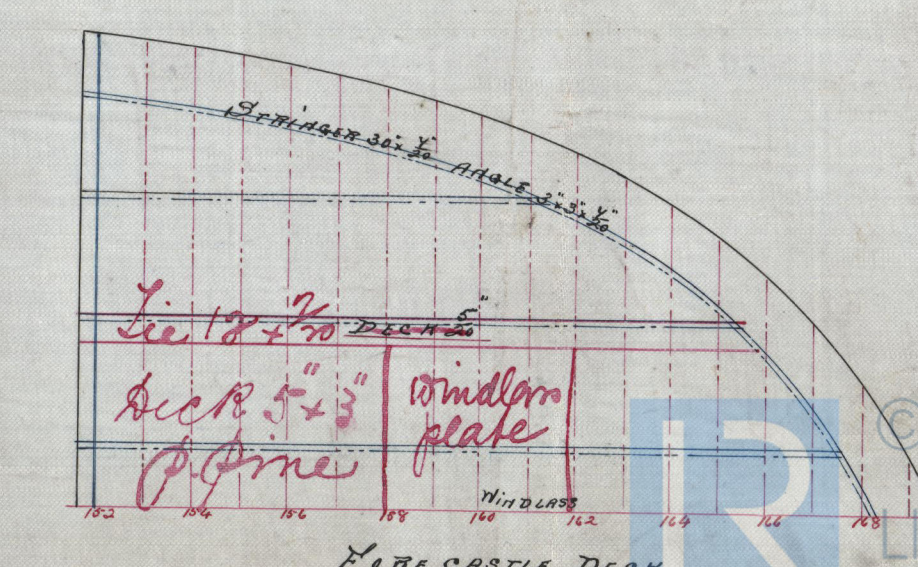 STRINGER 30" x 4/20" ANGLE 3" x 3" x 4/20"
Tie 18 x 7/20 DECK 5/20"
Deck 5" x 3"
P. Pine
Windlass
plate
WINDLASS
152 154 156 158 160 162 164 166 168
FORECASTLE DECK
©
LR